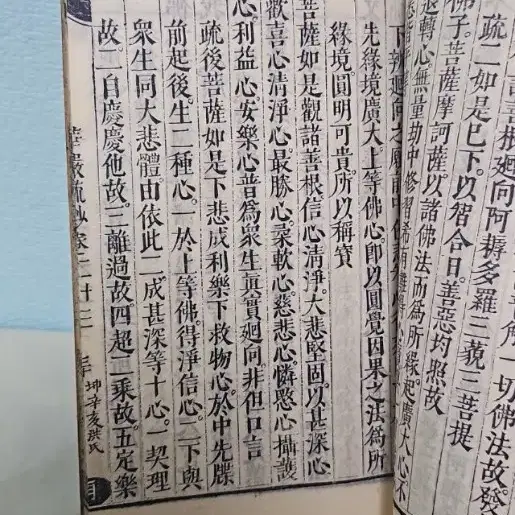 一切佛法故發
善根廻向阿耨多羅三藐三菩提
疏二如是已下以智合日善惡均照故
佛子菩薩摩訶薩以諸佛法而爲所緣起廣大心不
退轉心無量劫中修習希
下辨廻向之願
先緣境廣大上等佛心即以圓覺因果之法爲所
緣境圓明可貴所以稱寶
菩薩如是觀諸善根信心清淨大悲堅固以甚深心
歡喜心清淨心最勝心柔軟心慈悲心憐愍心攝護
心利益心安樂心普爲衆生眞實廻向非但口言
疏後菩薩如是下悲成利樂下救物心於中先牒
前起後生二種心一於上等佛得淨信心二下與
衆生同大悲體由依此二成甚深等十心一契理
故二自慶慶他故三離過故四超二乘故五定樂
華嚴疏鈔卷二十三
三十 坤辛亥洪氏